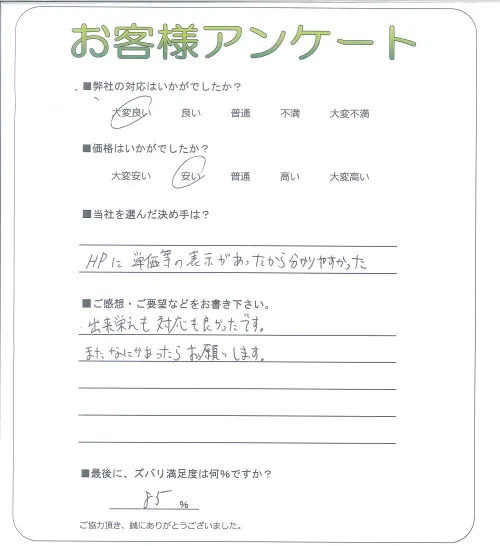 お客様アンケート
■弊社の対応はいかがでしたか？
大変良い 良い 普通 不満 大変不満
■価格はいかがでしたか？
大変安い 安い 普通 高い 大変高い
■当社を選んだ決め手は？
HPに単価等の表示があったから分かりやすかった
■ご感想・ご要望などをお書き下さい。
出来栄えも対応も良かったです。
またなにかあったらお願いします。
■最後に、ズバリ満足度は何％ですか？
85 ％
ご協力頂き、誠にありがとうございました。